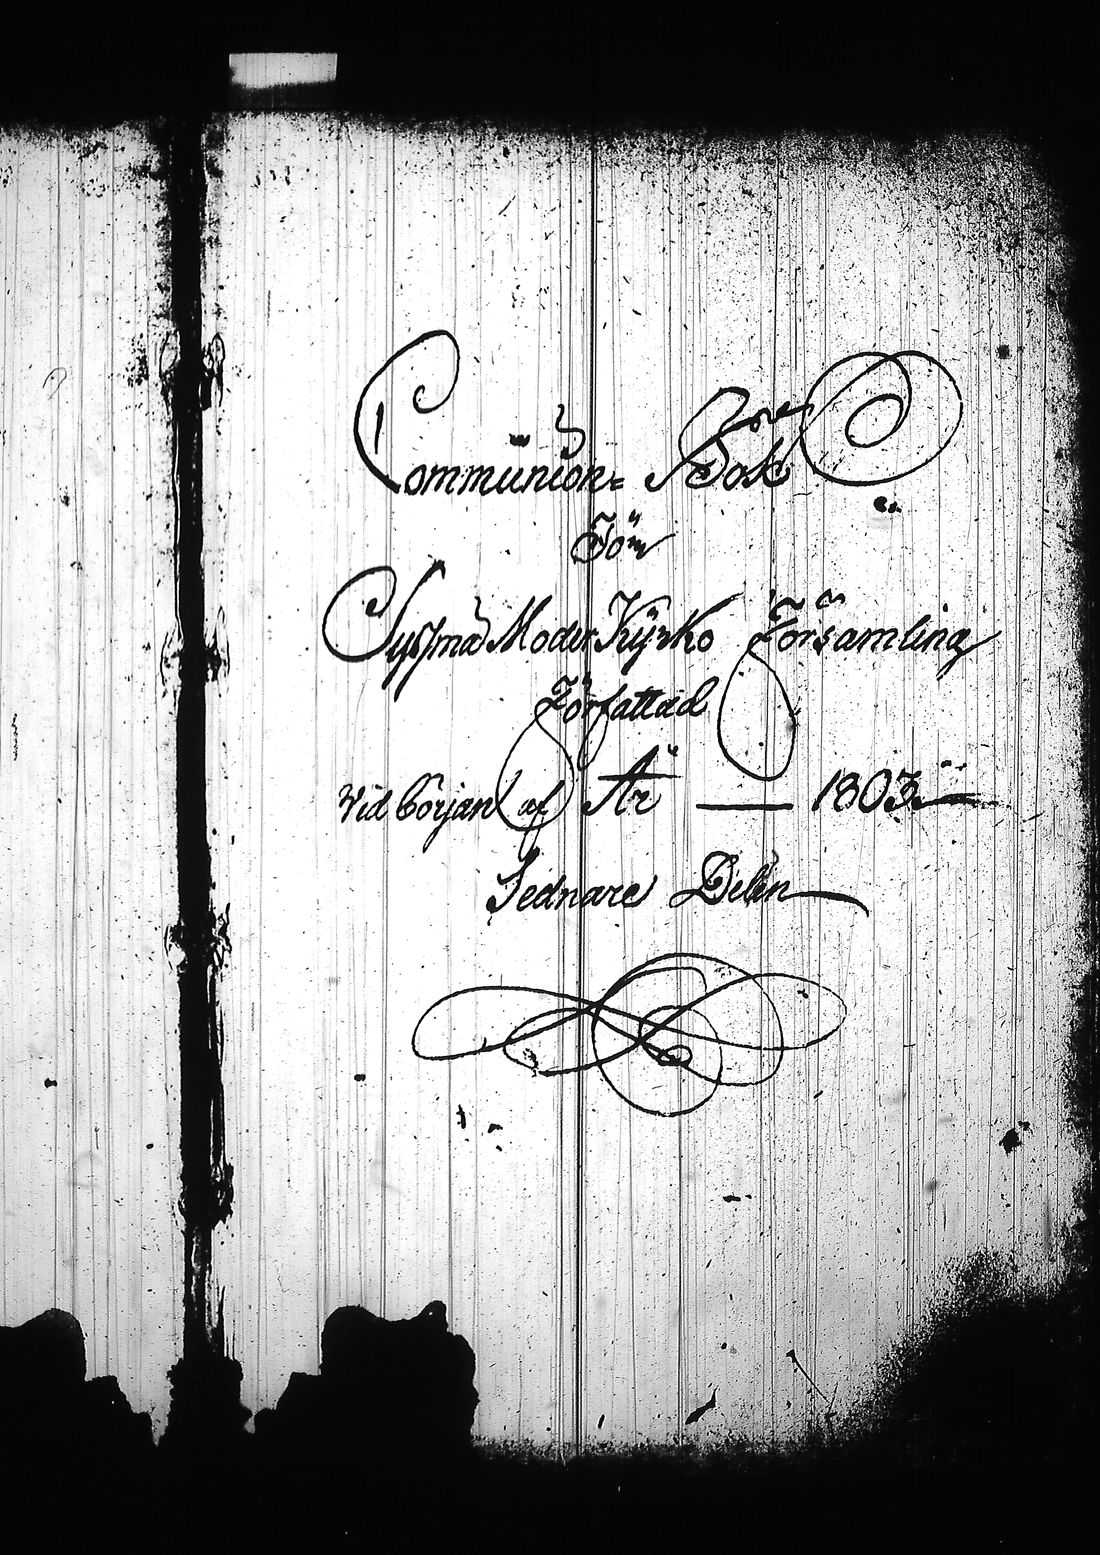 Communion- Bok
För
Sysmä Moder Kyrko Församling
Författad
Vid början af År — 1803.
Sednare Delen